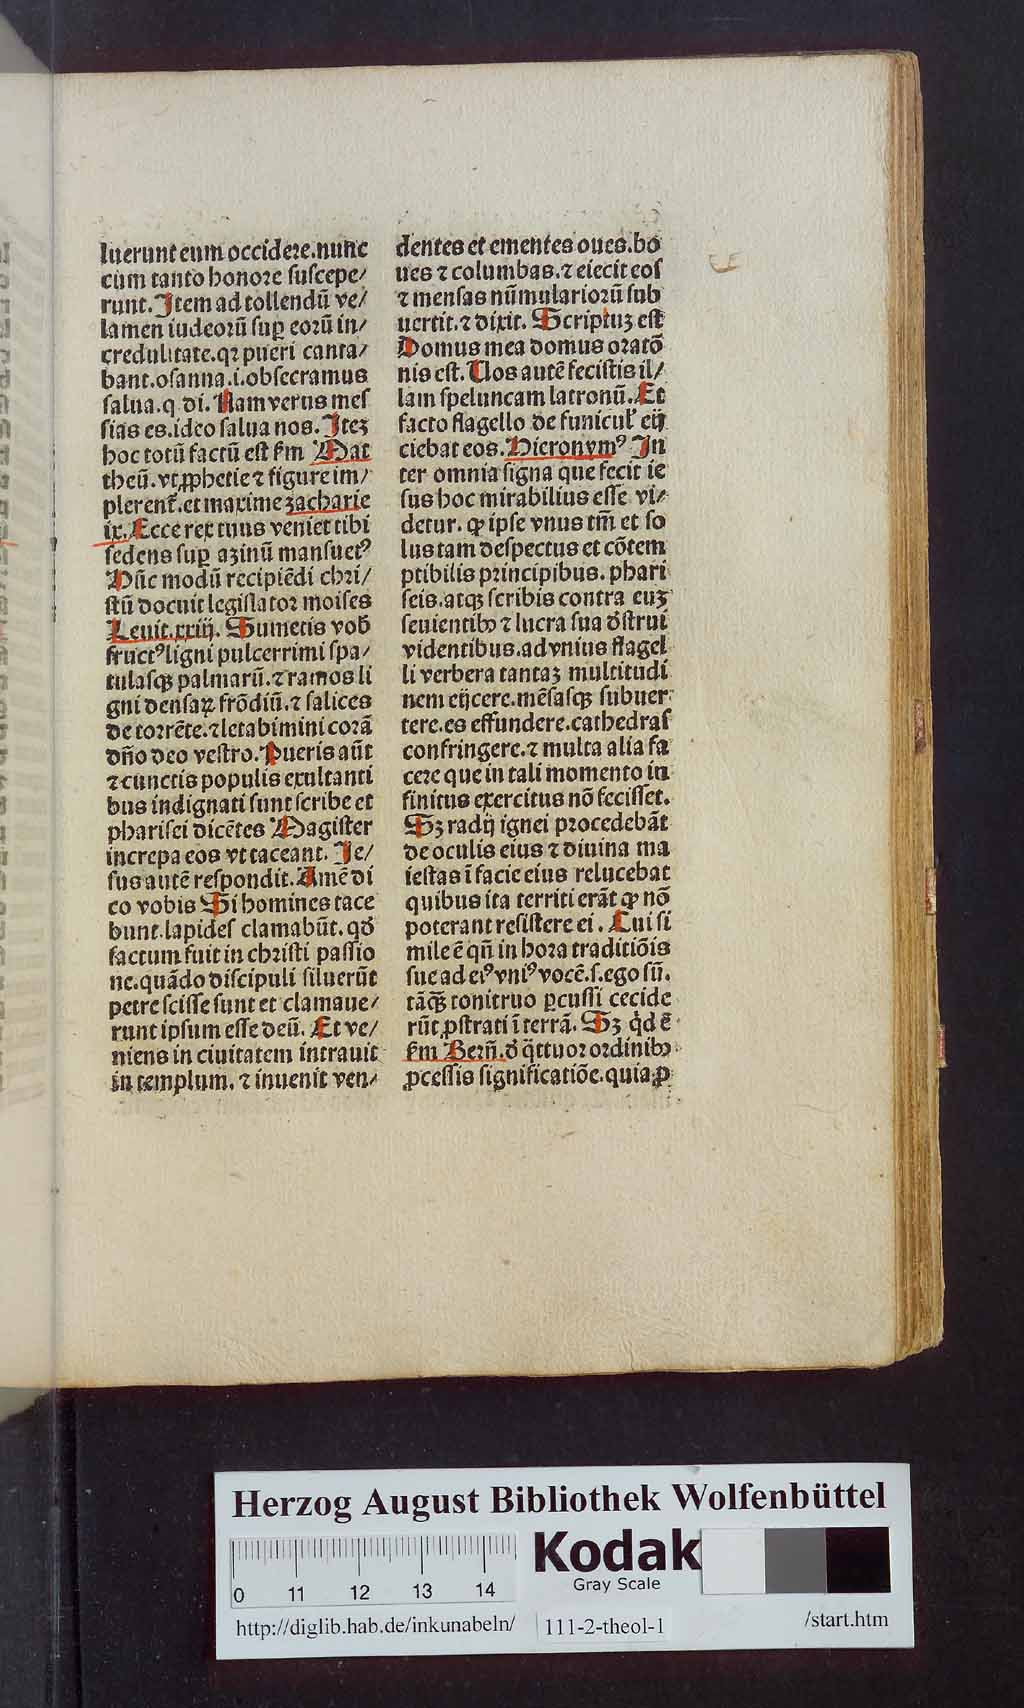 luerunt eum occidere.nunc
cum tanto honore suscepe/
runt. Item ad tollendū ve/
lamen iudeorū suꝑ eorū in/
credulitate.qꝛ pueri canta/
bant.osanna.i.obsecramus
salua.q. di. Nam verus mes
sias es.ideo salua nos. Itez
hoc totū factū est s̄m Mat
theū. vt ꝓphetie ⁊ figure im/
plerent᷑.et maxime zacharie
ix. Ecce rex tuus veniet tibi
sedens suꝑ azinū mansuetꝰ
Hūc modū recipiēdi chri/
stū docuit legislator moises
Leuit.xxiij. Sumetis vob̄
fructꝰ ligni pulcerrimi spa/
tulasqꝫ palmarū.⁊ ramos li
gni densaꝝ frōdiū.⁊ salices
de torrēte.⁊ letabimini corā
dn̄o deo vestro. Pueris aūt
⁊ cunctis populis exultanti
bus indignati sunt scribe et
pharisei dicētes Magister
increpa eos vt taceant. Je/
sus autē respondit. Amē di
co vobis Si homines tace
bunt.lapides clamabūt. qd̄
factum fuit in christi passio
ne.quādo discipuli siluerūt
petre scisse sunt et clamaue/
runt ipsum esse deū. Et ve/
niens in ciuitatem intrauit
in templum. ⁊ inuenit ven/
dentes et ementes oues.bo
ues ⁊ columbas.⁊ eiecit eos
⁊ mensas nūmulariorū sub
uertit.⁊ dixit. Scriptuꝫ est
Domus mea domus oratō
nis est. Uos autē fecistis il/
lam speluncam latronū. Et
facto flagello de funicul᷑ eij
ciebat eos. Hieronymꝰ In
ter omnia signa que fecit ie
sus hoc mirabilius esse vi/
detur. ꝙ ipse vnus tm̄ et so
lus tam despectus et cōtem
ptibilis principibus. phari
seis.atqꝫ scribis contra euꝫ
seuientibꝰ ⁊ lucra sua d̓strui
videntibus.ad vnius flagel
li verbera tantaꝫ multitudi
nem eijcere.mēsasqꝫ subuer
tere.es effundere.cathedras
confringere.⁊ multa alia fa
cere que in tali momento in
finitus exercitus nō fecisset.
Sꝫ radij ignei procedebāt
de oculis eius ⁊ diuina ma
iestas ī facie eius relucebat
quibus ita territi erāt ꝙ nō
poterant resistere ei. Cui si
mile ē qn̄ in hora traditiōis
sue ad eiꝰ vniꝰ vocē.s.ego sū.
tāqꝫ tonitruo ꝑcussi cecide
rūt ꝓstrati ī terrā. Sꝫ qd̓ ē
s̄m Bern̄. d̓ q̄ttuor ordinibꝰ
ꝓcessis significatiōe.quia ꝓ
Herzog August Bibliothek Wolfenbüttel
Kodak
Gray Scale
0 11 12 13 14
http://diglib.hab.de/inkunabeln/ 111-2-theol-1 /start.htm